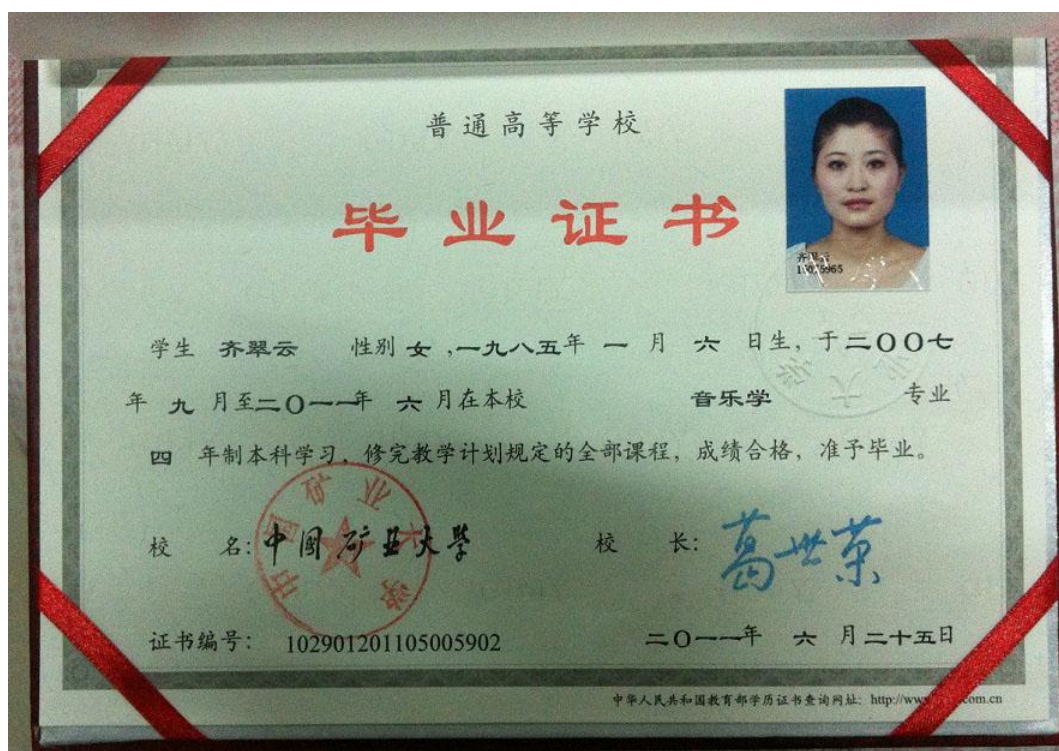 普通高等学校
毕业证书
齐翠云
学生 齐翠云 性别 女,一九八五年 一 月 六 日生, 于二〇〇七
年 九 月至二〇一一年 六 月在本校 音乐学 专业
四 年制本科学习, 修完教学计划规定的全部课程, 成绩合格, 准予毕业。
校 名: 中国矿业大学
校 长: 葛世荣
中国矿业大学
证书编号: 102901201105005902
二〇一一年 六 月二十五日
中华人民共和国教育部学历证书查询网址: http://www com.cn